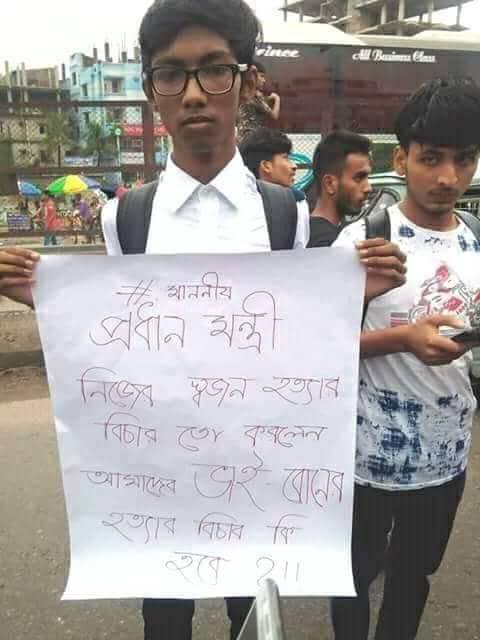 rince
All Business Class
# মাননীয়
প্রধান মন্ত্রী
নিজের স্বজন হত্যার
বিচার তো করলেন
আমাদের ভাই-বোনের
হত্যার বিচার কি
হবে ?।।